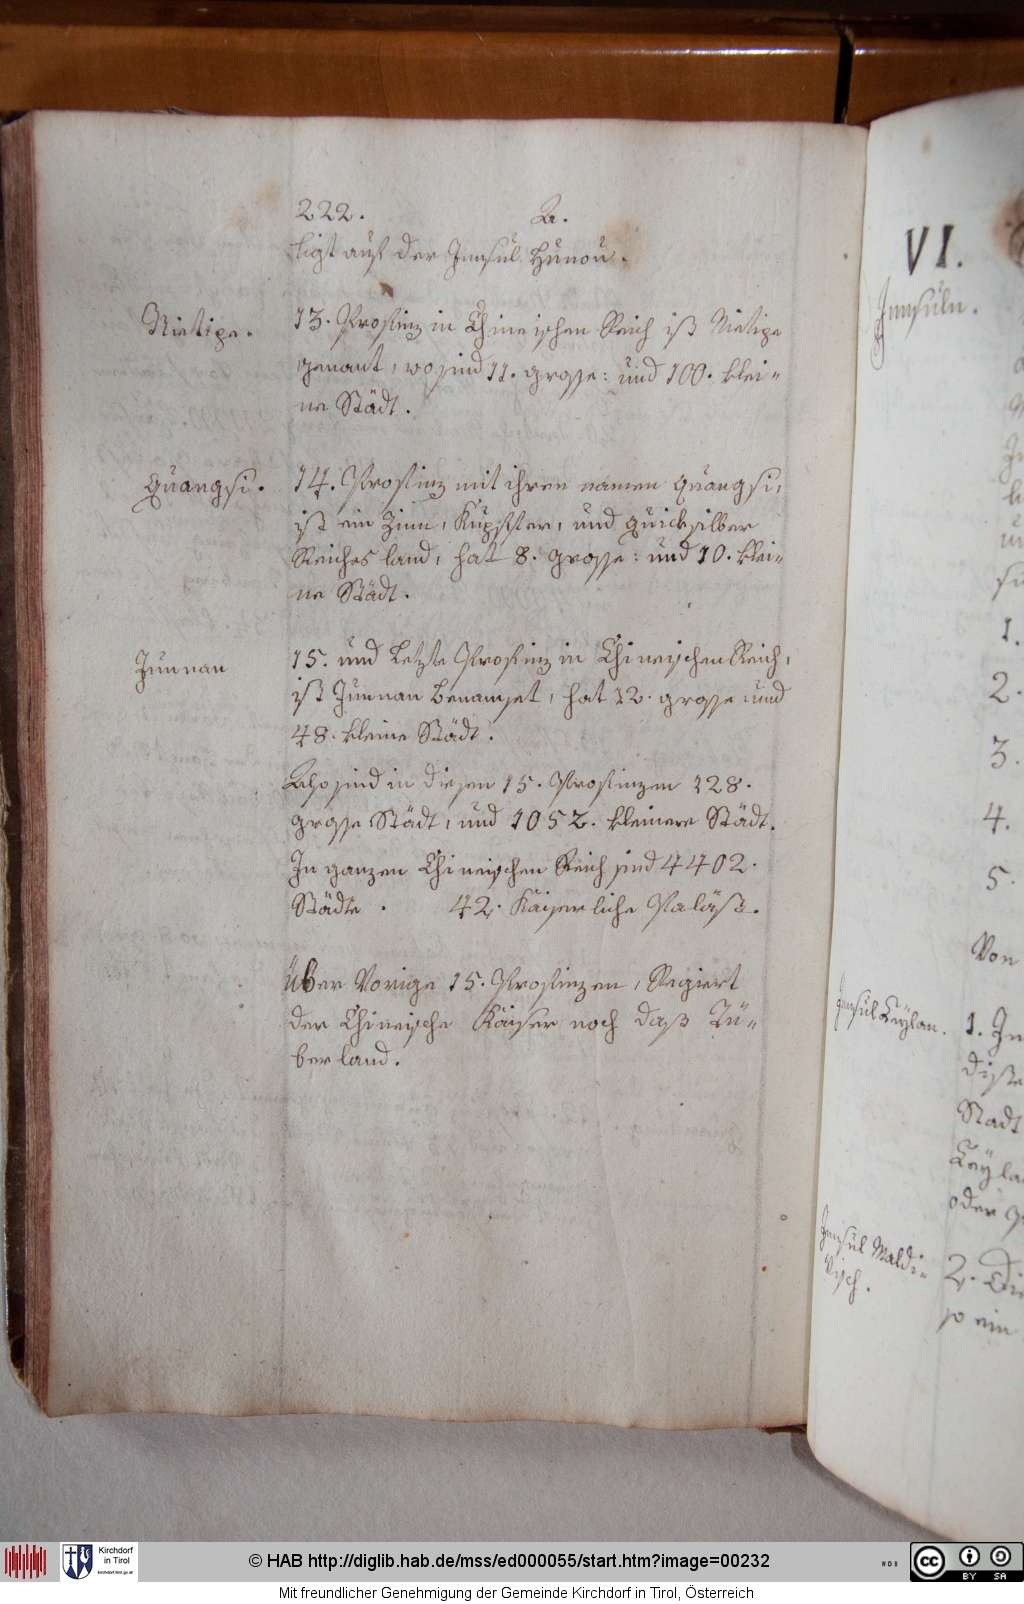 222. A.
ligt auf der Jnnsul Hunou.
Nietipe. 13. Profinz in Chineischen Reich ist Nietipe
genant, wo sind 11. grosse: und 100. klei=
ne Städt.
Quangsi. 14. Profinz mit ihren namen Quangsi,
ist ein Zinn, Kupffer, und Quicksilber
Reiches land, hat 8. grosse: und 10. klei=
ne Städt.
Junnan 15. und Letzte Profinz in Chineischen Reich,
ist Junnan Benamset, hat 12. grosse und
48. kleine Städt.
Also sind in diesen 15. Profinzen 128.
grosse Städt, und 1052. kleinere Städt.
In ganzen Chineischen Reich sind 4402.
Städte. 42. Kaiserliche Paläst.
Über Vorige 15. Profinzen, Regiert
der Chineische Kaiser noch daß Tü=
berland.
VI.
Jnnsuln.
1.
2.
3.
4.
5.
Von
Jnnsul Zeÿlan. 1. In
Stadt
oder
Jnnsul Maldi=
visch.
2. Die
so ein
© HAB http://diglib.hab.de/mss/ed000055/start.htm?image=00232
Kirchdorf
in Tirol
kirchdorf.tirol.gv.at
WDB
CC BY SA
Mit freundlicher Genehmigung der Gemeinde Kirchdorf in Tirol, Österreich